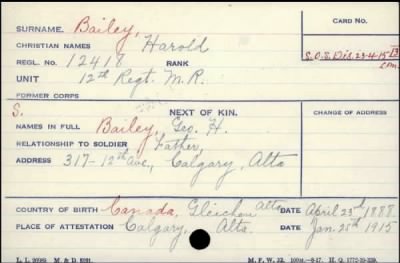 SURNAME. Bailey,
CARD NO.
CHRISTIAN NAMES Harold
REGL. NO. 12418 RANK
S.O.S. Dis. 23-4-15
UNIT 12th Regt. M.R.
FORMER CORPS
S. NEXT OF KIN.
CHANGE OF ADDRESS
NAMES IN FULL Bailey, Geo. H.
RELATIONSHIP TO SOLDIER Father,
ADDRESS 317-12th Ave., Calgary, Alta
COUNTRY OF BIRTH Canada, Gleichen Alta DATE April 23rd 1888.
PLACE OF ATTESTATION Calgary, Alta. DATE Jan. 25th 1915
M. F. W. 22.